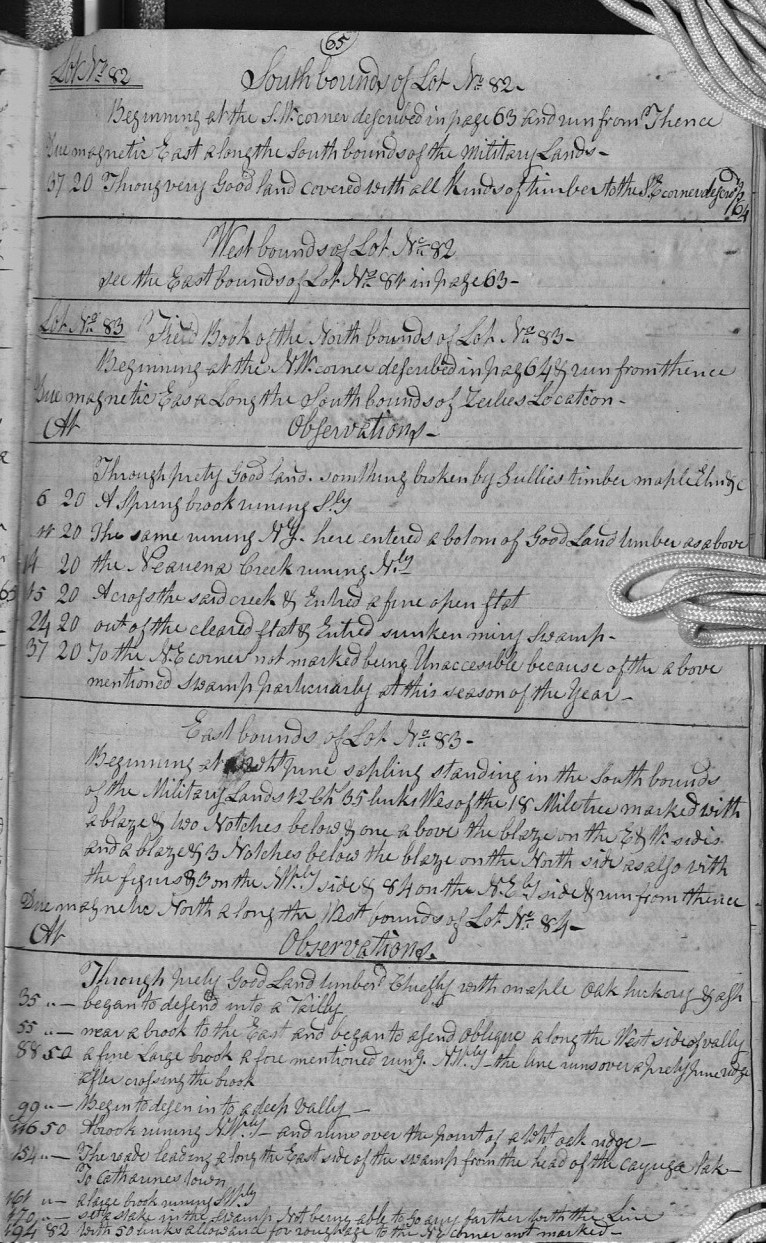 65
Lot No. 82 South bounds of Lot No. 82.
Beginning at the S.W. corner described in page 63 and run from Thence
Due magnetic East along the South bounds of the Military Lands -
37 20 Throug very Good land covered with all Kinds of timber to the S.E. corner descrd. p. 64
West bounds of Lot No. 82
see the East bounds of Lot No. 81 in page 63 -
Lot No. 83 Field Book of the North bounds of Lot No. 83 -
Beginning at the N.W. corner described in pag 64 & run from thence
Due magnetic Eas a Long the South bounds of Location -
At Observations -
Through prety Good land. somthing broken by Gullies timber maple Elm &c
6 20 A Spring brook runing Sly
20 The same runing N.y. here entered a botom of Good Land timber as above
14 20 the Creek runing N.ly
15 20 Across the said creek & Entred a fine open flat
24 20 out of the cleared flat & Entred sunken miry Swamp -
37 20 To the N.E corner not marked being Unaccesible because of the above
mentioned swamp particuarly at this season of the Year -
East bounds of Lot No. 83 -
Beginning at a wht pine sapling standing in the South bounds
of the Military Lands 12 Ch. 35 links Wes of the 18 Mile tree marked with
a blaze & two Notches below & one above the blaze on the E & W. sides
and a blaze & 3 Notches below the blaze on the North side as also with
the figurs 83 on the N.W.ly side & 84 on the N.E.ly side & run from thence
Due magnetic North along the West bounds of Lot No. 84 -
At Observations.
Through prety Good Land timberd Cheifly with maple oak hickory & ash
35 " - began to desend into a Vally
55 " - near a brook to the East and began to asend oblique along the West side of vally
88 50 a fine Large brook afore mentioned rung. N.W.ly - the line runs over a prety pine ridge
after crossing the brook
99 " - Begin to desen in to a deep Vally -
116 50 A brook runing N.W.ly - and runs over the point of a wht oak ridge -
154 " - The roade leading along the East side of the swamp from the head of the cayuga lak -
To Catharines town
161 " - a large brook runing S.W.ly
170 " - set a stake in the Swamp Not being able to Go any farther with the Line
194 82 with 50 links allowand for roughage to the N.E corner not marked -